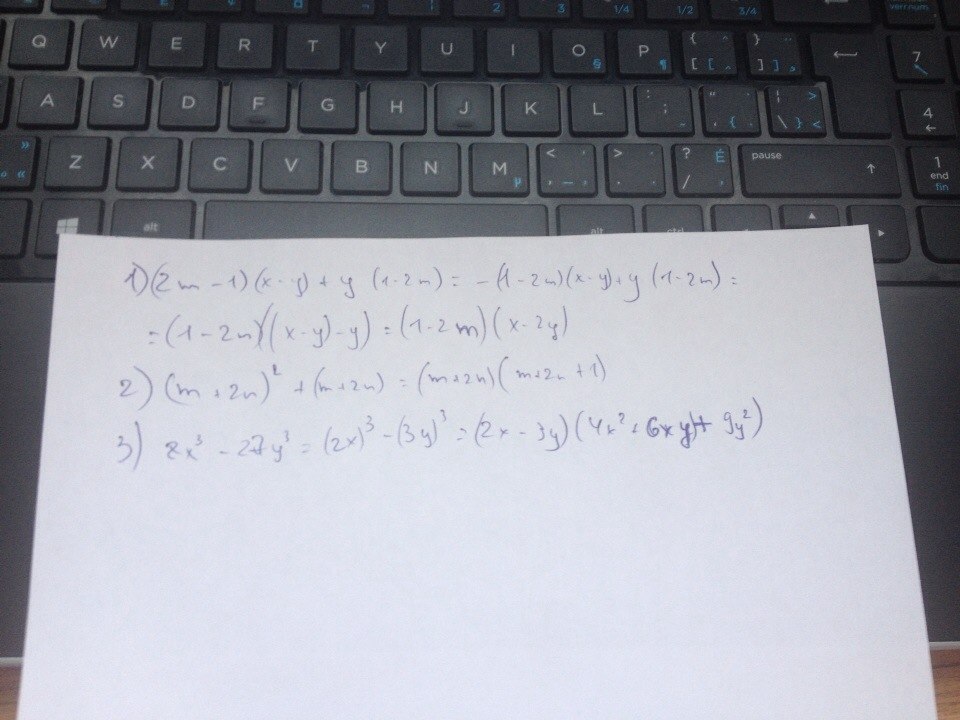 Q W E R T Y U I O § P ¶ { [ [ } ] ] ← 7
2 3 1/4 1/2 3/4 verr.num
A S D F G H J K L : ; " ' { | \ } > < 4 ←
» « Z X C V B N M µ < , > . ? / É pause ↑ 1 end fin
alt alt ctrl ▲ ▶
1) (2m - 1) (x - y) + y (1 - 2m) = - (1 - 2m) (x - y) + y (1 - 2m) =
= (1 - 2m) ((x - y) - y) = (1 - 2m) (x - 2y)
2) (m + 2n)² + (m + 2n) = (m + 2n) (m + 2n + 1)
3) 8x³ - 27y³ = (2x)³ - (3y)³ = (2x - 3y) (4x² + 6xy + 9y²)